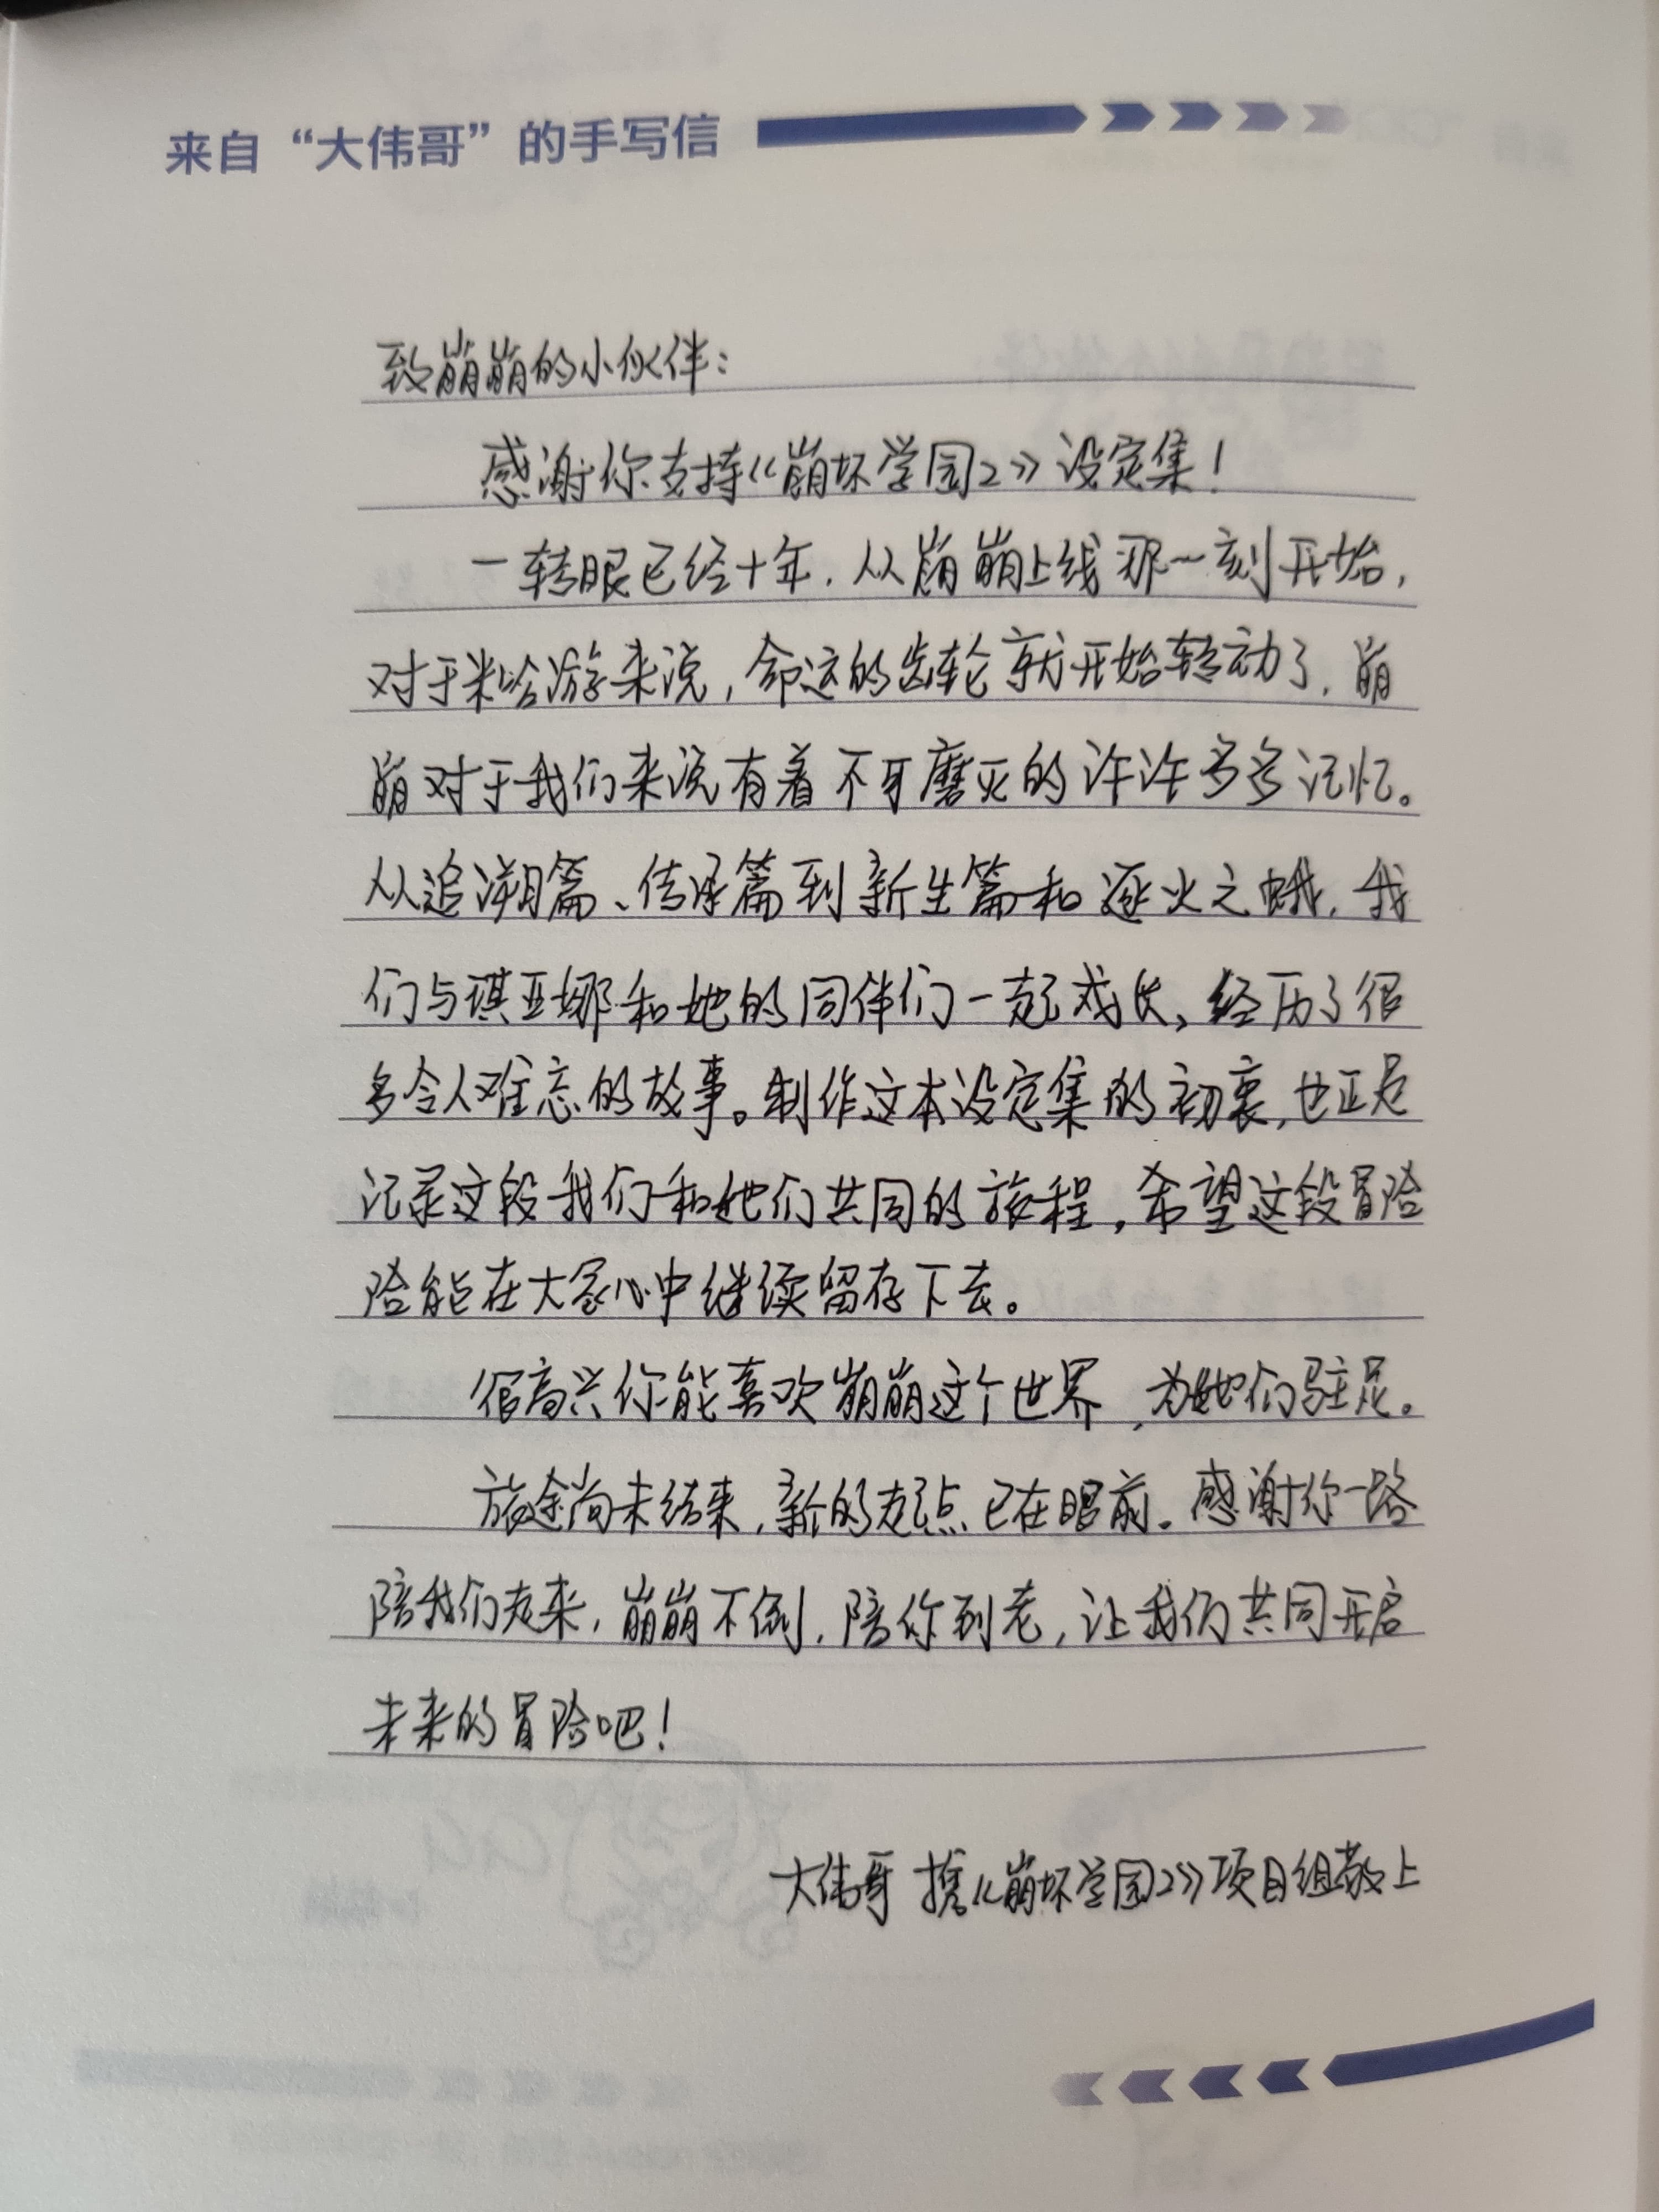 来自“大伟哥”的手写信
致崩崩的小伙伴：
感谢你支持《崩坏学园2》设定集！
一转眼已经十年，从崩崩上线那一刻开始，
对于米哈游来说，命运的齿轮就开始转动了，崩
崩对于我们来说有着不可磨灭的许许多多记忆。
从追溯篇、传承篇到新生篇和逐火之蛾，我
们与琪亚娜和她的同伴们一起成长，经历了很
多令人难忘的故事。制作这本设定集的初衷，也正是
记录这段我们和他们共同的旅程，希望这段冒险
险能在大家心中继续留存下去。
很高兴你能喜欢崩崩这个世界，为她们驻足。
旅途尚未结束，新的起点已在眼前。感谢你一路
陪我们走来，崩崩不倒，陪你到老，让我们共同开启
未来的冒险吧！
大伟哥 携《崩坏学园2》项目组敬上